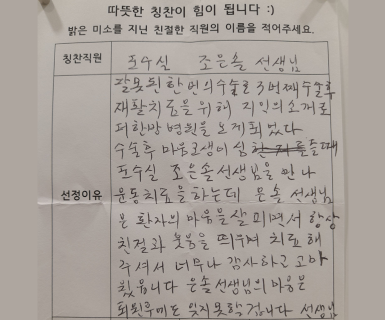 따뜻한 칭찬이 힘이 됩니다 :)
밝은 미소를 지닌 친절한 직원의 이름을 적어주세요.
칭찬직원 도수실 조은솔 선생님
잘못된 한번의 수술로 3번째 수술후
재활치료을 위해 지인의 소개로
병원을 오게되었다
수술후 마음고생이 심 들때
도수실 조은솔선생님을 만나
선정이유 운동치료을하는데 은솔 선생님
은 환자의 마음을 살피면서 항상
친절과 웃음을 띄우며 치료해
주셔서 너무나 감사하고 고마
웠읍니다 은솔선생님의 마음은
퇴원후에도 잊지못할겁니다 선생님